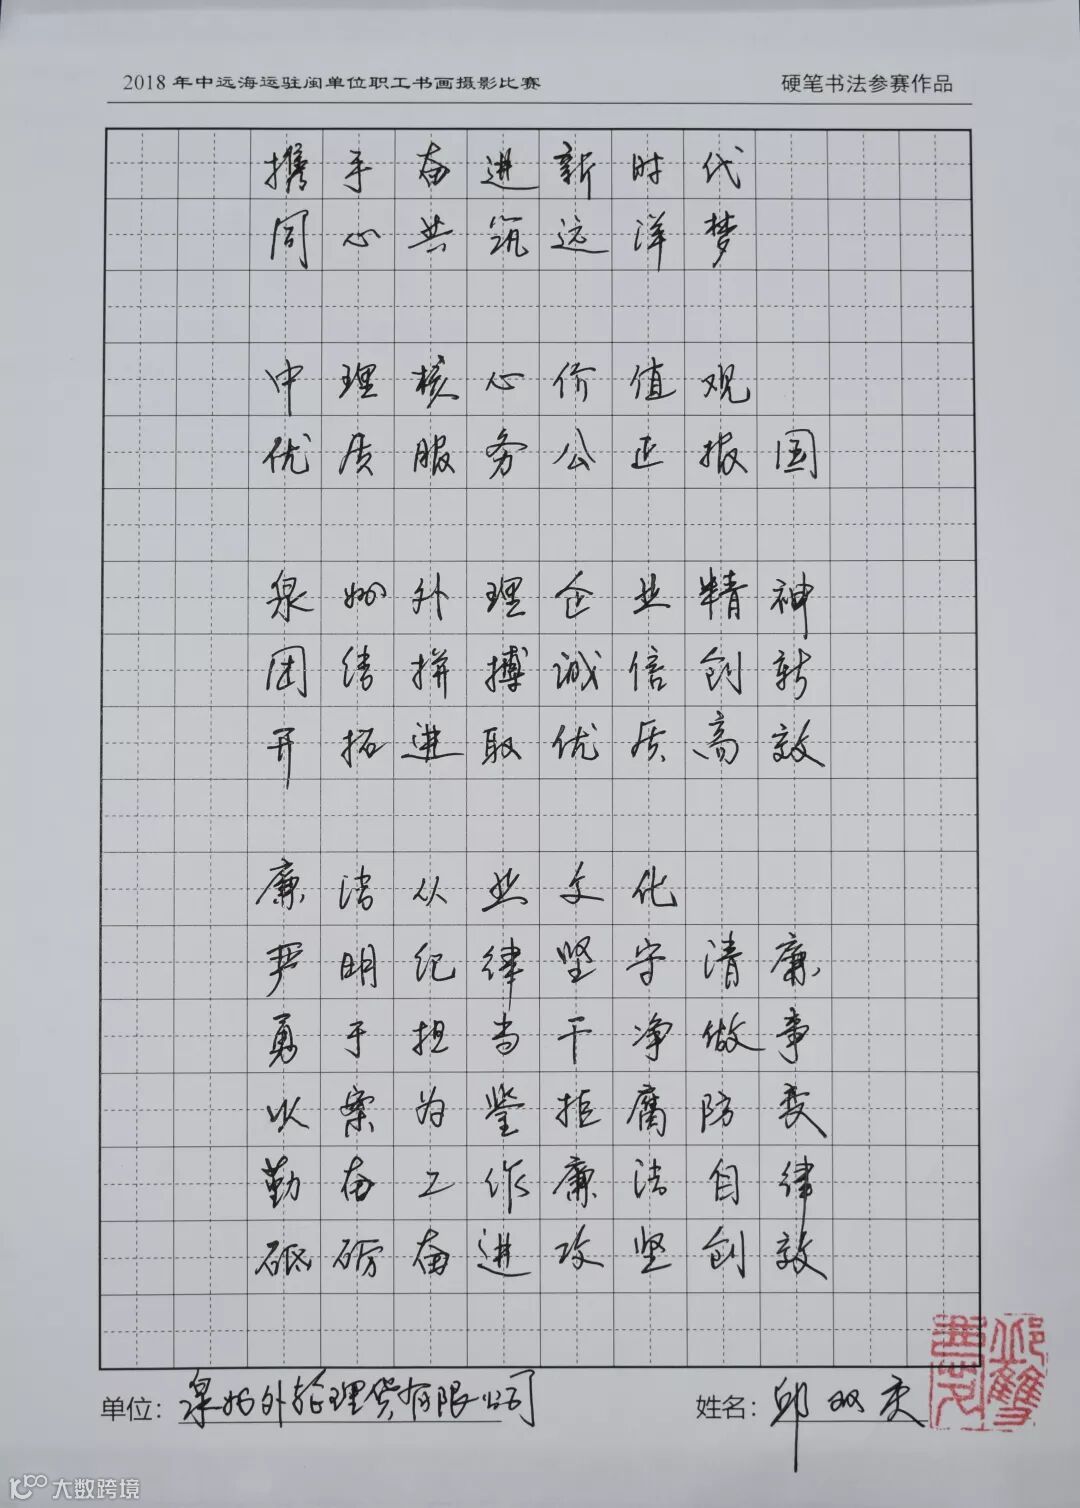 2018 年中远海运驻闽单位职工书画摄影比赛 硬笔书法参赛作品
携手奋进新时代
同心共筑远洋梦
中理核心价值观
优质服务公正报国
泉州外理企业精神
团结拼搏诚信创新
开拓进取优质高效
廉洁从业文化
严明纪律坚守清廉
勇于担当干净做事
以案为鉴拒腐防变
勤奋工作廉洁自律
砥砺奋进攻坚创效
单位：泉州外轮理货有限公司 姓名：邱双
大数跨境